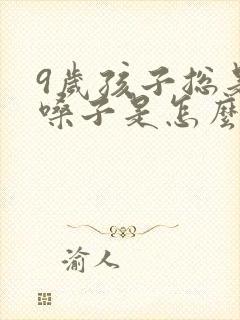 9歲孩子总是
嗓子是怎麼
渝人